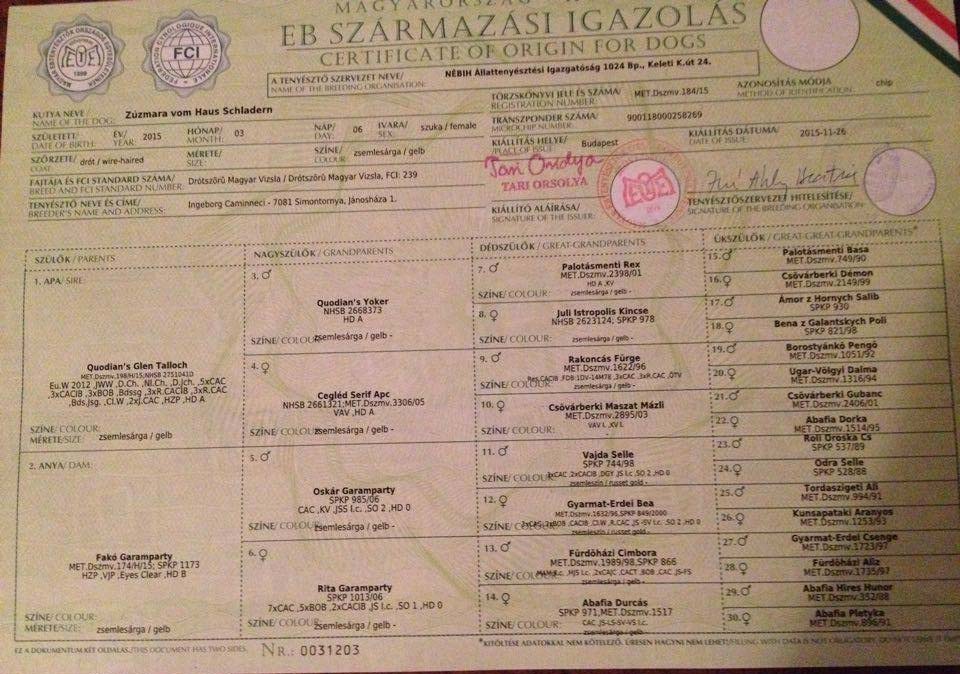 MAGYARORSZÁG
EB SZÁRMAZÁSI IGAZOLÁS
CERTIFICATE OF ORIGIN FOR DOGS
FCI
A TENYÉSZTŐ SZERVEZET NEVE/
NAME OF THE BREEDING ORGANISATION:
NÉBIH Állattenyésztési Igazgatóság 1024 Bp., Keleti K.út 24.
KUTYA NEVE
NAME OF THE DOG:
Zúzmara vom Haus Schladern
TÖRZSKÖNYVI JELE ÉS SZÁMA/
REGISTRATION NUMBER:
MET.Dszmv.184/15
AZONOSÍTÁS MÓDJA
METHOD OF IDENTIFICATION:
chip
SZÜLETETT/
DATE OF BIRTH:
ÉV/
YEAR:
2015
HÓNAP/
MONTH:
03
NAP/
DAY:
06
IVARA/
SEX:
szuka / female
TRANSZPONDER SZÁMA/
MICROCHIP NUMBER:
900118000258269
SZŐRZETE/
COAT:
drót / wire-haired
MÉRETE/
SIZE:
SZÍNE/
COLOUR:
zsemlesárga / gelb
KIÁLLÍTÁS HELYE/
PLACE OF ISSUE:
Budapest
KIÁLLÍTÁS DÁTUMA/
DATE OF ISSUE:
2015-11-26
FAJTÁJA ÉS FCI STANDARD SZÁMA/
BREED AND FCI STANDARD NUMBER:
Drótszőrű Magyar Vizsla / Drótszőrű Magyar Vizsla, FCI: 239
Tari Orsolya
TARI ORSOLYA
TENYÉSZTŐ NEVE ÉS CÍME/
BREEDER'S NAME AND ADDRESS:
Ingeborg Caminneci - 7081 Simontornya, Jánosháza 1.
KIÁLLÍTÓ ALÁÍRÁSA/
SIGNATURE OF THE ISSUER:
TENYÉSZTŐSZERVEZET HITELESÍTÉSE/
SIGNATURE OF THE BREEDING ORGANISATION:
SZÜLŐK / PARENTS
NAGYSZÜLŐK / GRANDPARENTS
DÉDSZÜLŐK / GREAT-GRANDPARENTS
ÜKSZÜLŐK / GREAT-GREAT-GRANDPARENTS*
1. APA/ SIRE:
Quodian's Glen Talloch
MET.Dszmv.198/H/15;NHSB 2751041D
Eu.W 2012 ,JWW ,D.Ch. ,Nl.Ch. ,D.Jch. ,5xCAC
,3xCACIB ,3xBOB ,Bdssg ,3xR.CACIB ,3xR.CAC
,Bds.Jsg. ,Cl.W ,2xJ.CAC ,HZP ,HD A
SZÍNE/ COLOUR:
MÉRETE/SIZE:
zsemlesárga / gelb
2. ANYA/ DAM:
Fakó Garamparty
MET.Dszmv.174/H/15; SPKP 1173
HZP ,VJP ,Eyes Clear ,HD B
SZÍNE/ COLOUR:
MÉRETE/SIZE:
zsemlesárga / gelb
3. ♂
Quodian's Yoker
NHSB 2668373
HD A
SZÍNE/ COLOUR:
zsemlesárga / gelb -
4. ♀
Cegléd Serif Apc
NHSB 2661321;MET.Dszmv.3306/05
VAV ,HD A
SZÍNE/ COLOUR:
zsemlesárga / gelb -
5. ♂
Oskár Garamparty
SPKP 985/06
CAC ,KV ,JSS I.c. ,SO 2 ,HD 0
SZÍNE/ COLOUR:
zsemlesárga / gelb -
6. ♀
Rita Garamparty
SPKP 1013/06
7xCAC ,5xBOB ,2xCACIB ,JS I.c. ,SO 1 ,HD 0
SZÍNE/ COLOUR:
zsemlesárga / gelb -
7. ♂
Palotásmenti Rex
MET.Dszmv.2398/01
HD A ,KV
SZÍNE/ COLOUR:
zsemlesárga / gelb -
8. ♀
Juli Istropolis Kincse
NHSB 2623124; SPKP 978
SZÍNE/ COLOUR:
zsemlesárga / gelb -
9. ♂
Rakoncás Fürge
MET.Dszmv.1622/96
SZÍNE/ COLOUR:
zsemlesárga / gelb -
10. ♀
Csövárberki Maszat Mázli
MET.Dszmv.2895/03
VAV I. ,KV I.
SZÍNE/ COLOUR:
zsemlesárga / gelb -
11. ♂
Vajda Selle
SPKP 744/98
SZÍNE/ COLOUR:
zsemleszín / russet gold -
12. ♀
Gyarmat-Erdei Bea
MET.Dszmv.1632/96,SPKP 849/2000
SZÍNE/ COLOUR:
zsemleszín / russet gold -
13. ♂
Fürdőházi Cimbora
MET.Dszmv.1989/98,SPKP 866
SZÍNE/ COLOUR:
zsemlesárga / gelb -
14. ♀
Abafia Durcás
SPKP 971,MET.Dszmv.1517
CAC ,JS-LS-SV-VS I.c.
SZÍNE/ COLOUR:
zsemlesárga / gelb -
15. ♂
Palotásmenti Basa
MET.Dszmv.749/90
16. ♀
Csövárberki Démon
MET.Dszmv.2149/99
17. ♂
Ámor z Hornych Salib
SPKP 930
18. ♀
Bena z Galantskych Poli
SPKP 821/98
19. ♂
Borostyánkő Pengő
MET.Dszmv.1051/92
20. ♀
Ugar-Völgyi Dalma
MET.Dszmv.1316/94
21. ♂
Csövárberki Gubanc
MET.Dszmv.2406/01
22. ♀
Abafia Dorka
MET.Dszmv.1514/95
23. ♂
Roli Oroska Cs
SPKP 537/89
24. ♀
Odra Selle
SPKP 528/88
25. ♂
Tordaszigeti Ali
MET.Dszmv.994/91
26. ♀
Kunsapataki Aranyos
MET.Dszmv.1253/93
27. ♂
Gyarmat-Erdei Csenge
MET.Dszmv.1723/97
28. ♀
Fürdőházi Aliz
MET.Dszmv.1735/97
29. ♂
Abafia Hires Hunor
MET.Dszmv.352/88
30. ♀
Abafia Pletyka
MET.Dszmv.896/91
EZ A DOKUMENTUM KÉT OLDALAS./THIS DOCUMENT HAS TWO SIDES.
NR.: 0031203
*KITÖLTÉSE ADATOKKAL NEM KÖTELEZŐ. ÜRESEN HAGYNI NEM LEHET./FILLING WITH DATA IS NOT OBLIGATORY.